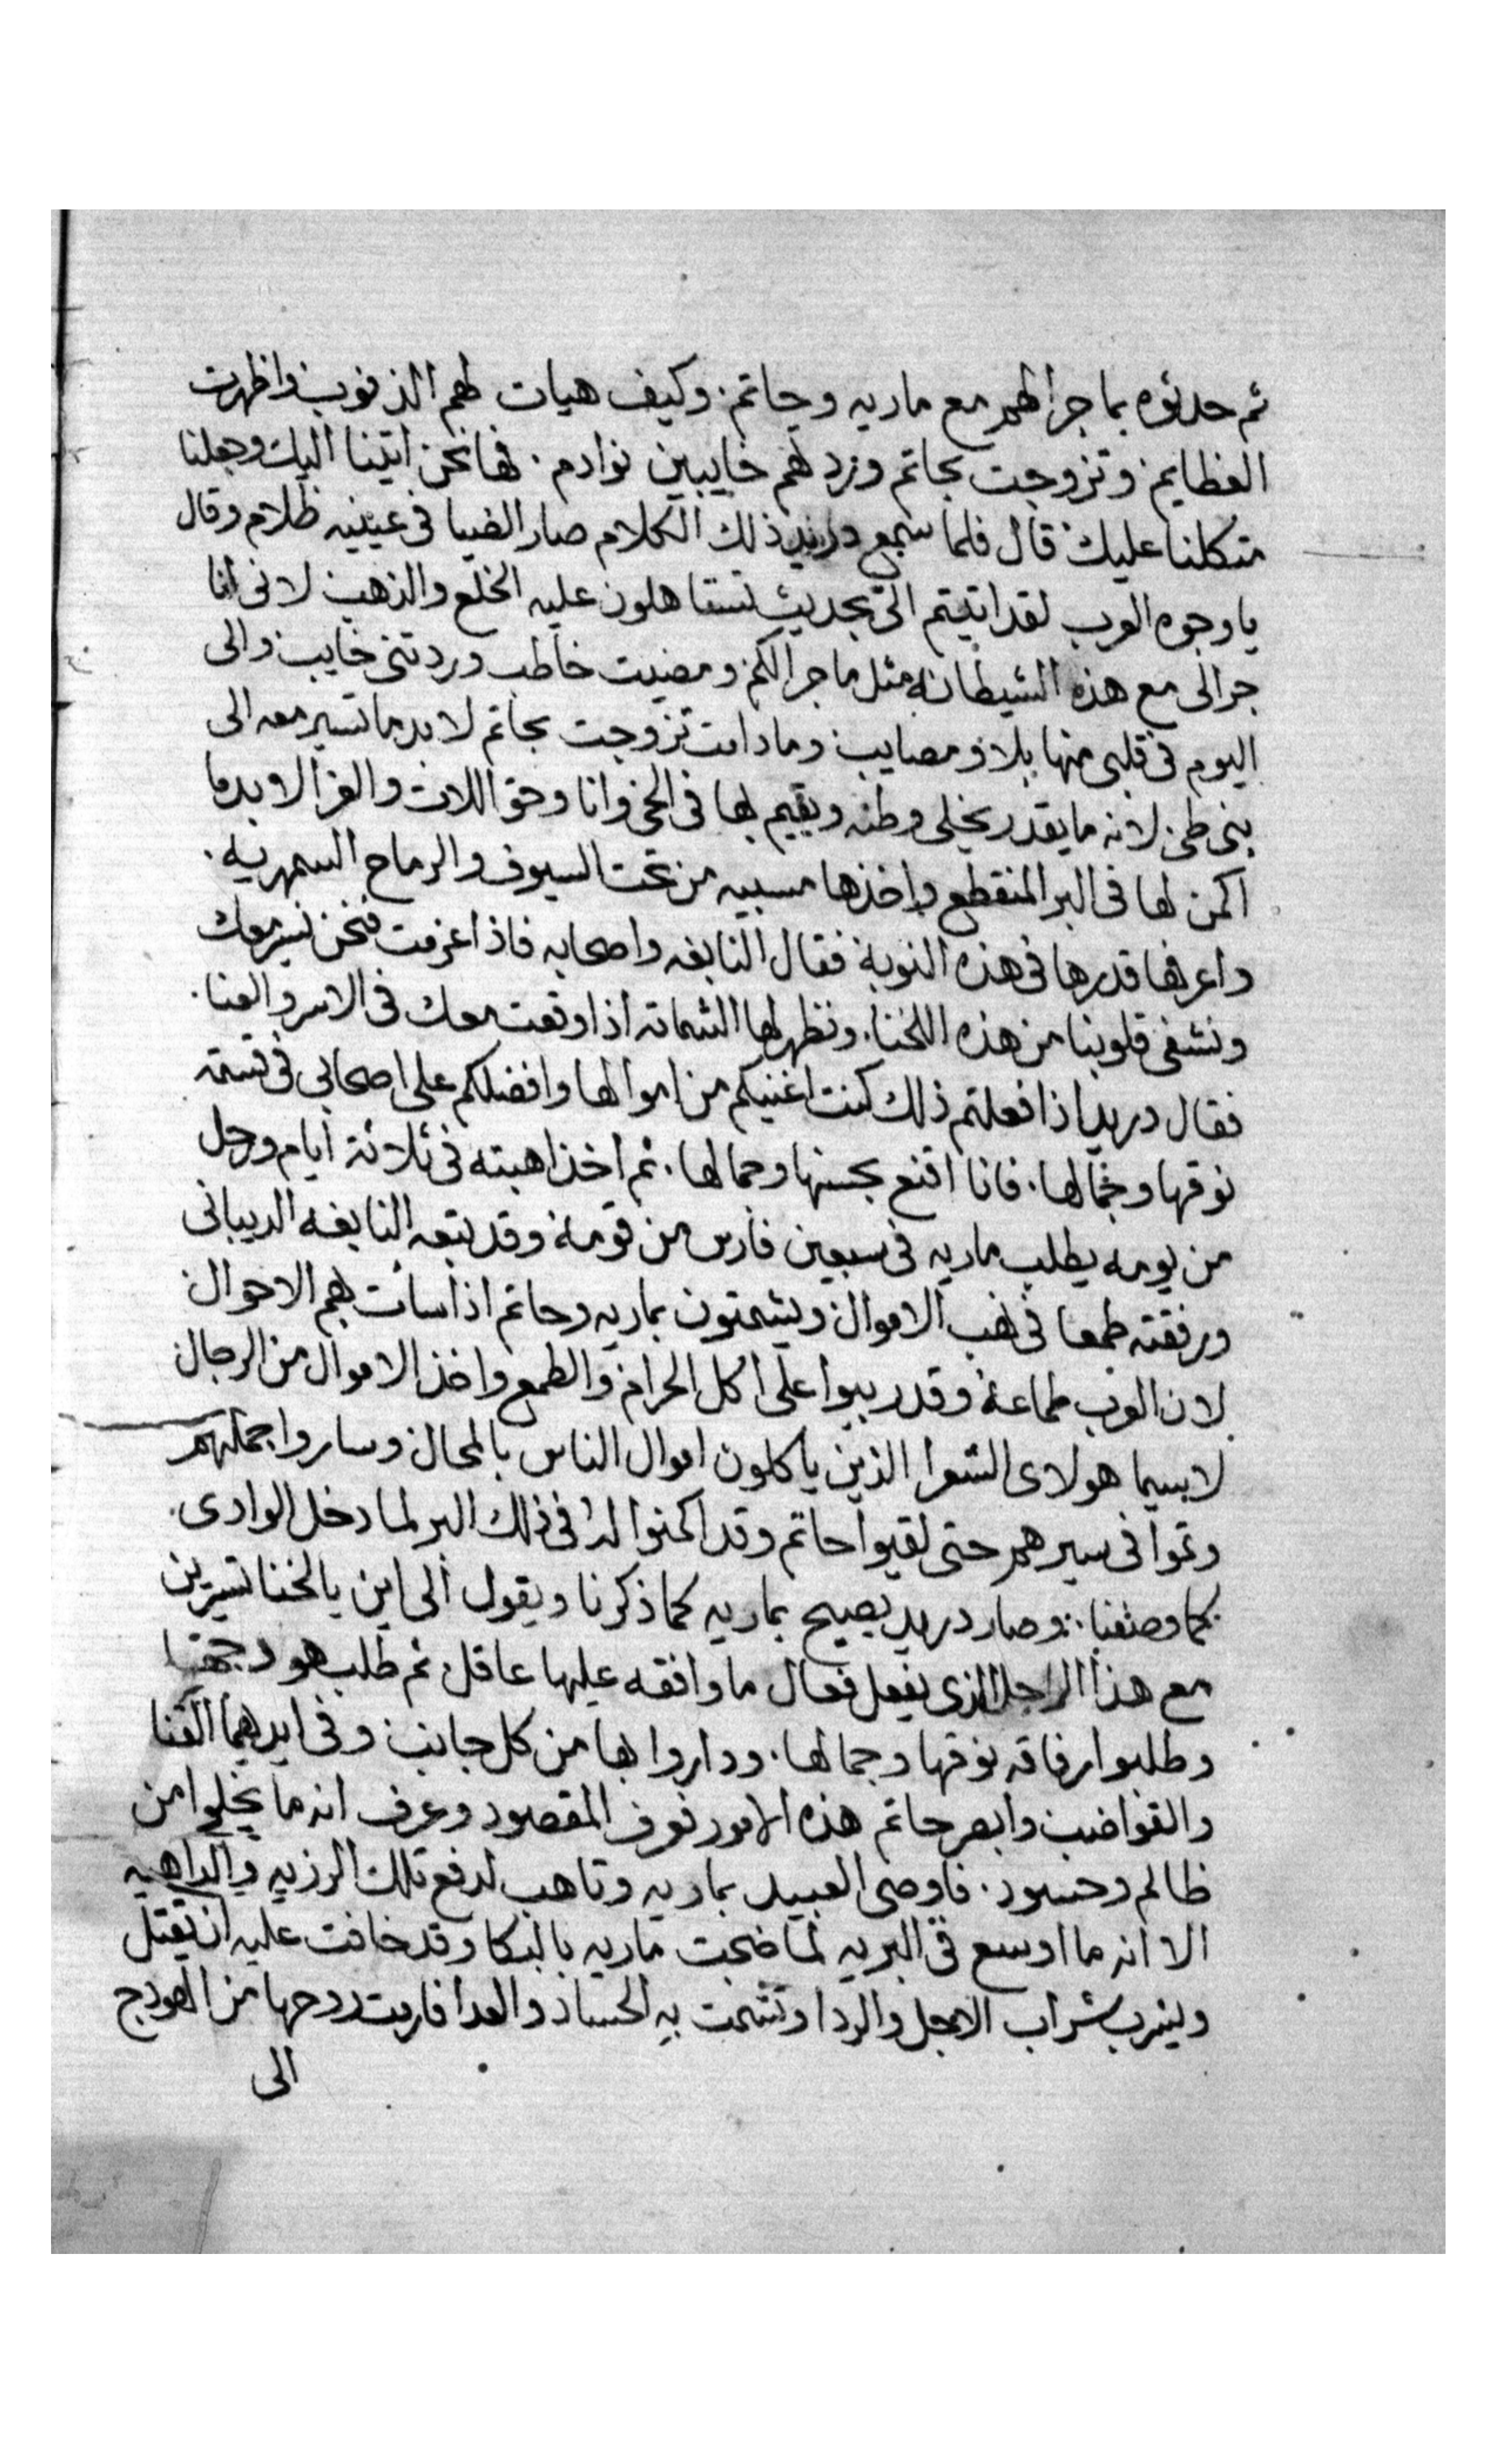 ثم حدثوه بما جرا لهم مع ماريه وحاتم. وكيف هيات لهم الذنوب واظهرت
العظايم وتزوجت بحاتم وردهم خايبين نوادم. فها نحن اتينا اليك وجعلنا
متكلنا عليك قال فلما سمع دريد ذلك الكلام صار الضيا في عينيه ظلام وقال
يا وجوه العرب لقد اتيتم الي بحديث تستاهلون عليه الخلع والذهب لاني انا
جرالى مع هذه الشيطانه مثل ما جرالكم ومضيت خاطب وردتني خايب والى
اليوم فى قلبى منها بلا ومصايب وما دامت تزوجت بحاتم لا بد ما تسير معه الى
بنى طى لانه ما يقدر يخلى وطنه ويقيم بها فى الحى وانا وحق اللات والعزا لا بد ما
اكمن لها فى البر المنقطع واخذها مسبيه من تحت السيوف والرماح السمهريه.
واعرفها قدرها فى هذه النوبة فقال النابغه واصحابه فاذا عزمت فنحن نسير معك
ونشفى قلوبنا من هذه اللخنا. ونظهر لها الشماته اذا وقعت معك فى الاسر والعنا.
فقال دريد اذا فعلتم ذلك كنت اغنيكم من اموالها وافضلكم على اصحابى فى قسمة
نوقها وجمالها. فانا اقنع بحسنها وجمالها. ثم اخذ اهبته فى ثلاثة ايام ورحل
من يومه يطلب ماريه فى سبعين فارس من قومه وقد تبعه النابغه الديبانى
ورفقته طمعا فى نهب الاموال ويشمتون بماريه وحاتم اذا سات بهم الاحوال
لان العرب طماعة وقد ربيوا على اكل الحرام والطمع واخذ الاموال من الرجال
لاسيما هولاى الشعرا الذين ياكلون اموال الناس بالمحال وساروا جملتهم
وتموا فى سيرهم حتى لقيوا حاتم وقد اكمنوا له فى ذلك البر لما دخل الوادى.
كما وصفنا. وصار دريد يصيح بماريه كما ذكرنا ويقول الى اين يا لخنا تسيرين
مع هذا الراجل الذى يفعل فعال ما وافقه عليها عاقل ثم طلب هودجها
وطلبوا رفاقه نوقها وجمالها. وداروا بها من كل جانب وفى ايديهما القنا
والقواضب وابصر حاتم هذه الامور فعرف المقصود وعرف انه ما يخلوا من
ظالم وحسود. فاوصى العبيد بماريه وتاهب لدفع تلك الرزيه والداهيه
الا انه ما اوسع فى البريه لما ضجت ماريه بالبكا وقد خافت عليه ان يقتل
ويشرب شراب الاجل والردا وتشمت به الحساد والعدا فارمت روحها من الهودج
الى